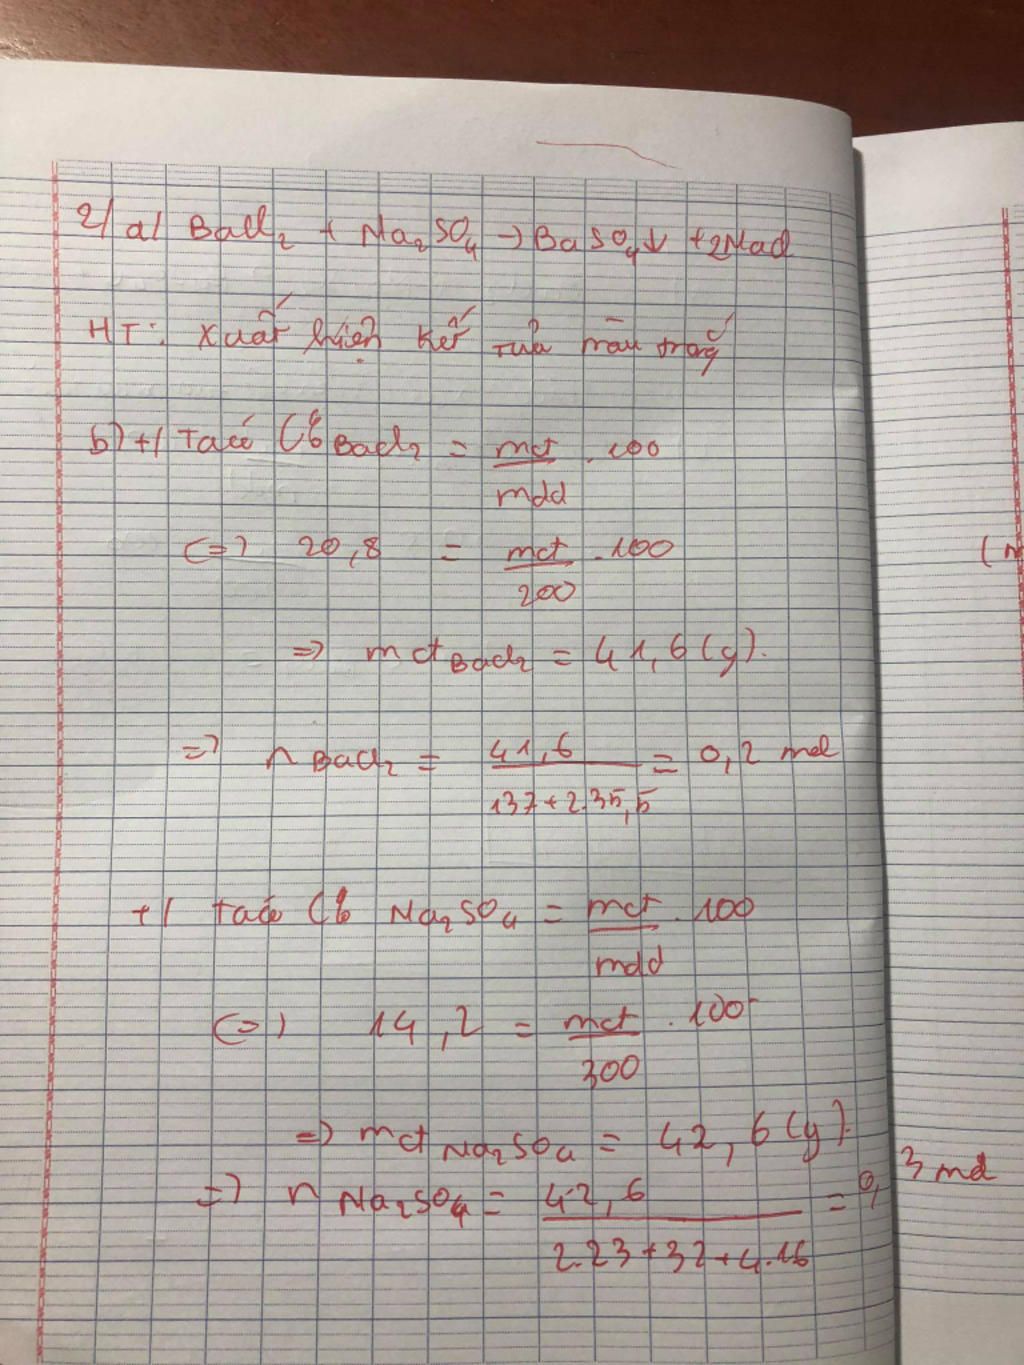 2/ a/ BaCl2 + Na2SO4 → BaSO4↓ + 2NaCl
HT: Xuất hiện kết tủa màu trắng
b) +/ Ta có C% BaCl2 = mct/mdd . 100
(=) 20,8 = mct/200 . 100
=> mct BaCl2 = 41,6 (g).
=> n BaCl2 = 41,6/137+2.35,5 = 0,2 mol
+/ Ta có C% Na2SO4 = mct/mdd . 100
(=) 14,2 = mct/300 . 100
=> mct Na2SO4 = 42,6 (g).
=> n Na2SO4 = 42,6/2.23+32+4.16 = 0,3 mol